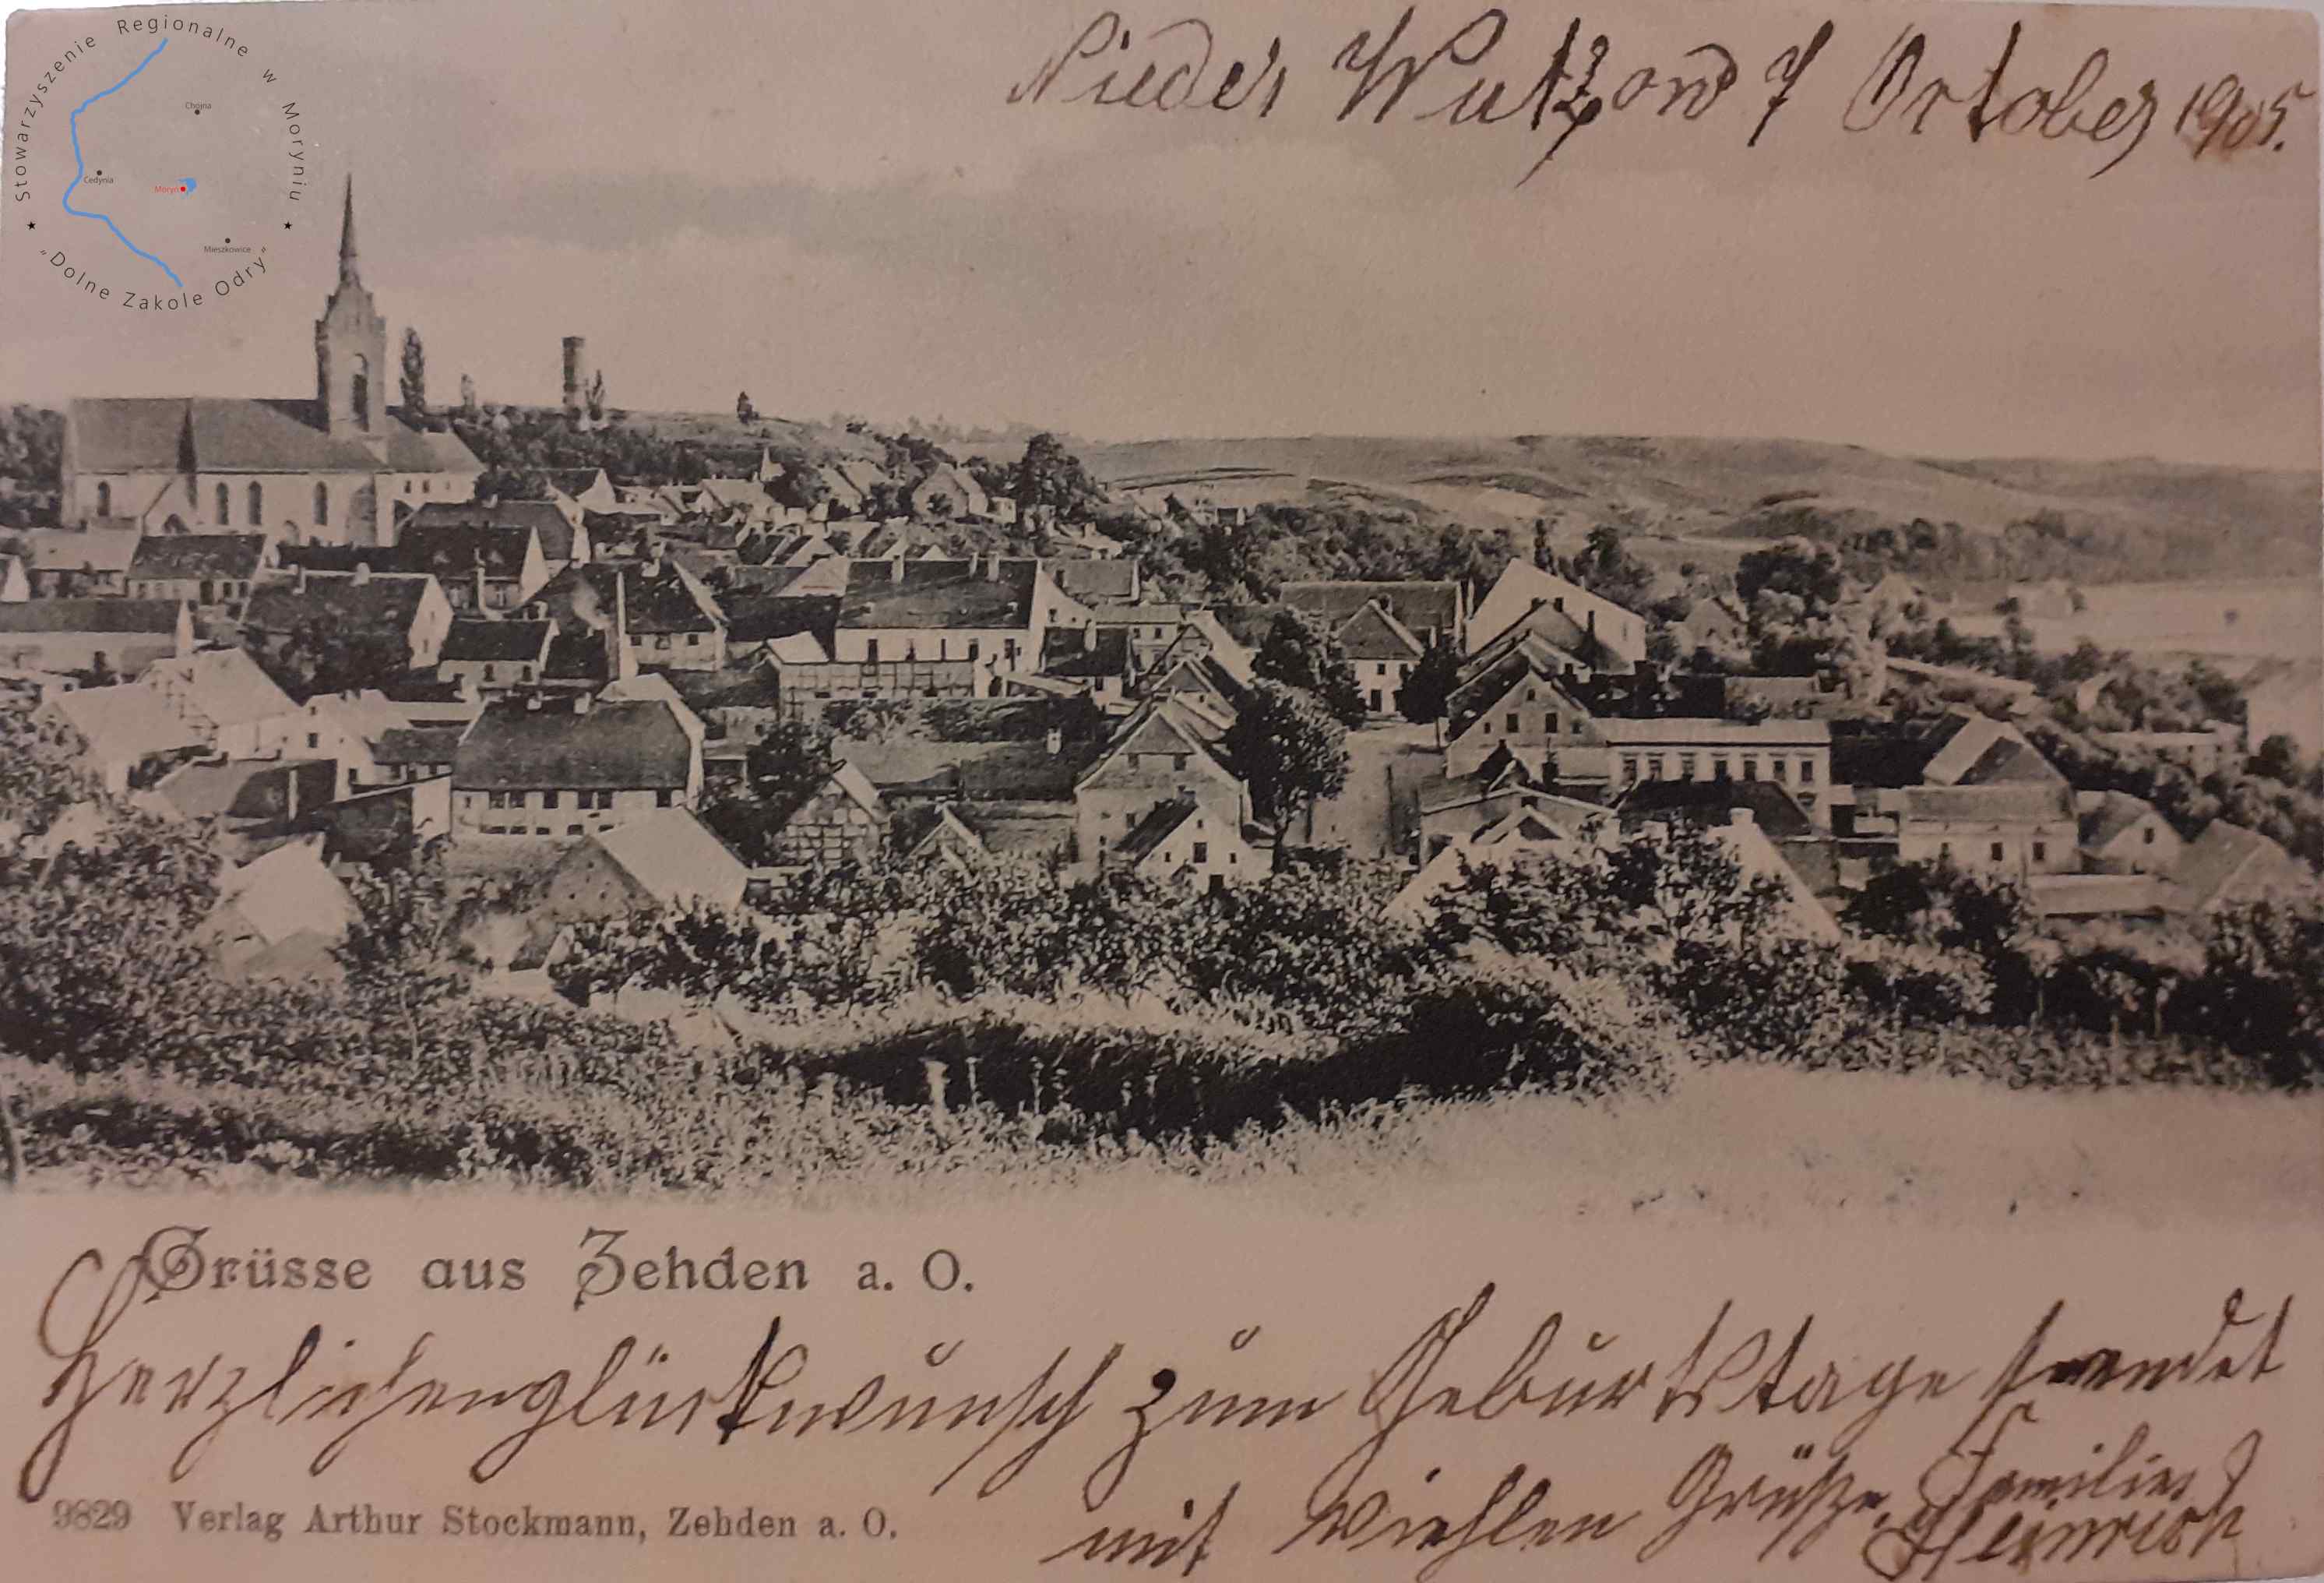 Stowarzyszenie Regionalne w Moryniu
"Dolne Zakole Odry"
Chojna
Cedynia
Moryń
Mieszkowice
Nieder Wutzow 7 October 1905.
Grüsse aus Zehden a. O.
Herzlichenglückwunsch zum Geburtstage sendet
mit viehlen Grüße Familie
Heinrich
9829 Verlag Arthur Stockmann, Zehden a. O.